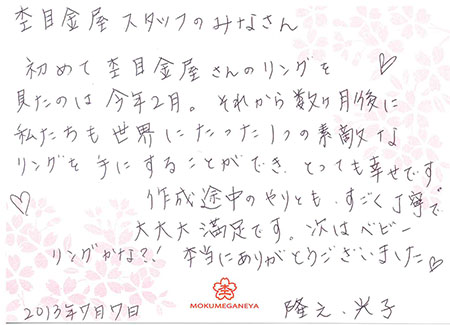 杢目金屋 スタッフのみなさん
初めて 杢目金屋 さんのリングを
見たのは 今年2月。 それから数ヶ月後に
私たちも 世界に たった1つの素敵な
リングを 手にすることができ、とっても幸せです
作成途中のやりとも、すごく丁寧で
大大大満足です。次は ベビー
リングかな?! 本当にありがとうございました
MOKUMEGANEYA
2013年7月7日
隆之、光子